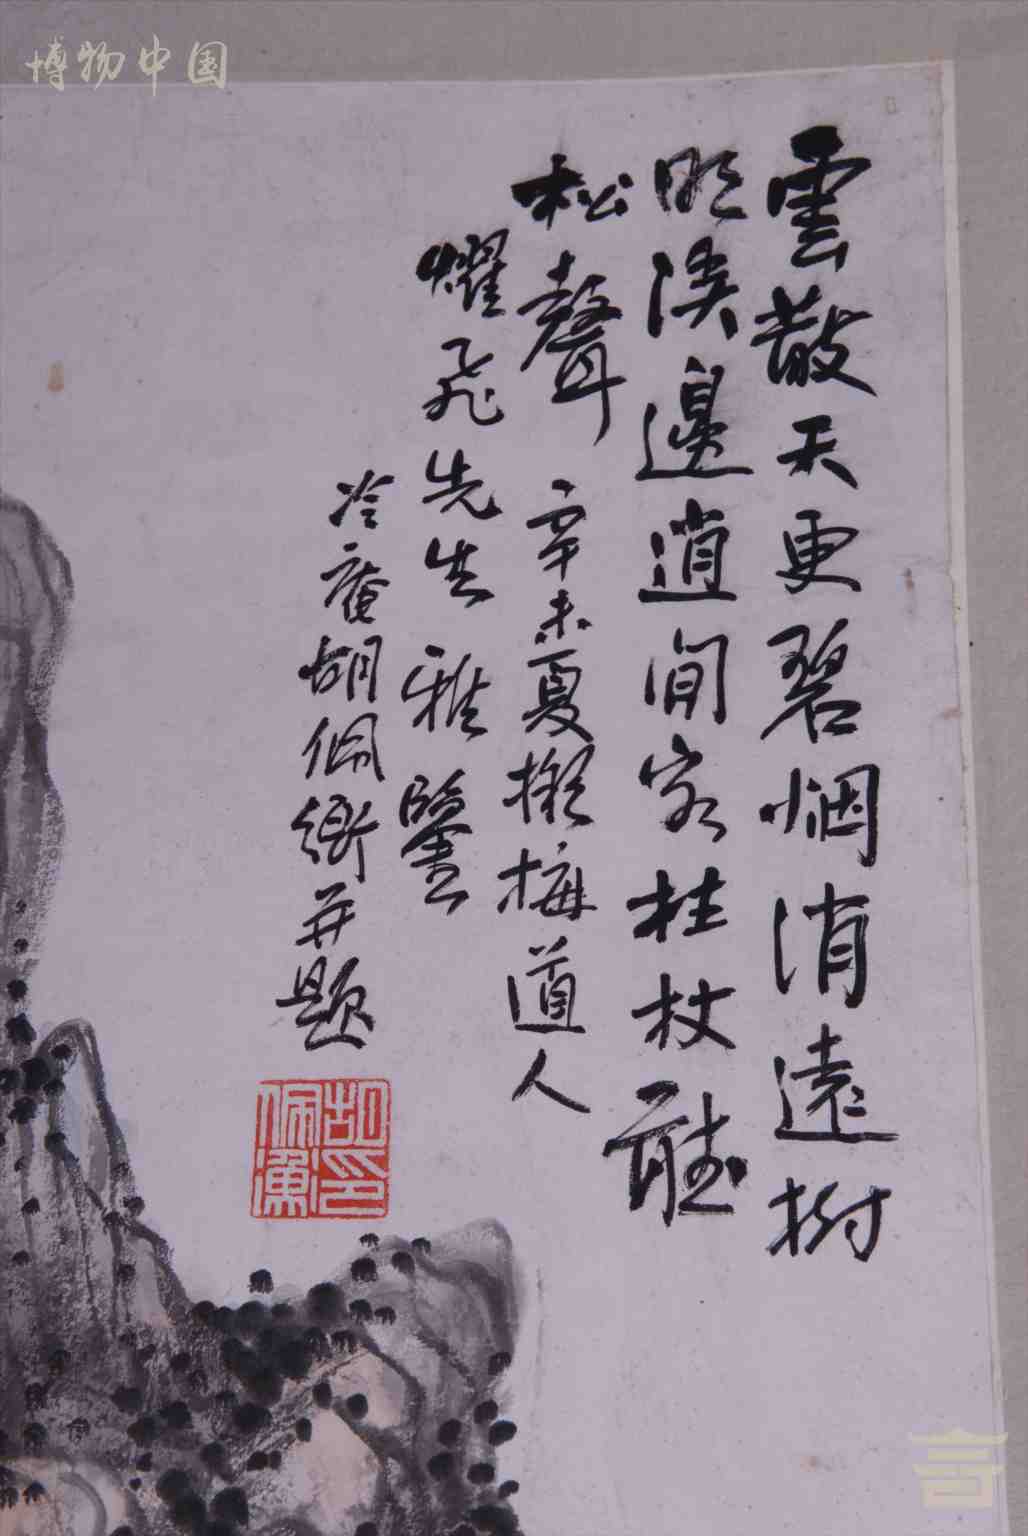 博物中国
雲散天更碧烟消遠樹
明溪邊逍閒客柱杖聽
松聲 辛未夏擬梅道人
燿飛先生雅鑒
冷庵胡佩衡并题
胡印佩衡